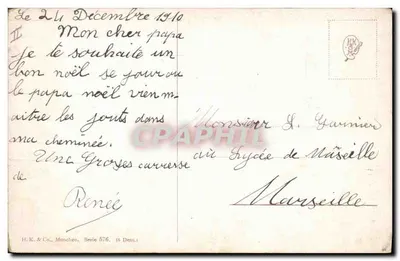 Le 24 Décembre 1910
II
Mon cher papa
je te souhaite un
bon noël se jour ou
le papa noël vien m-
aitre les jouts dans
ma cheminée.
Une Groses carresse
de
Renée
Monsieur L. Garnier
au Lycée de Marseille
Marseille
CPAPHIL
H. K. & Co., München. Serie 576.